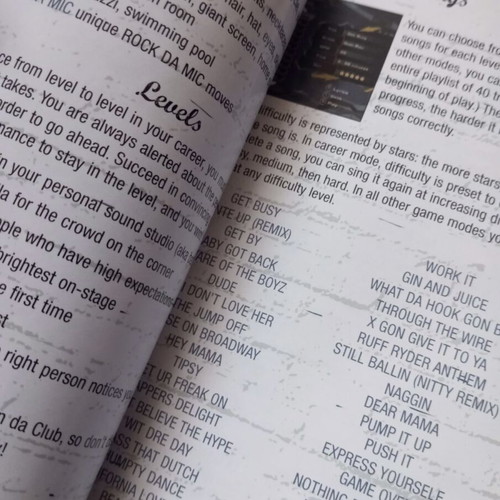 room
zzi, swimming pool
MIC unique ROCK DA MIC moves
giant screen,
hair, hat, eyes,
Levels
ce from level to level in your career, you
takes. You are always alerted about the
arder to go ahead. Succeed in convincing
hance to stay in the level, and you
in your personal sound studio (aka
la for the crowd on the corner
ople who have high expectations
brightest on-stage -
e first time
st
right person notices you
n da Club, so don't
y!
You can choose
songs for each level
other modes, you can
entire playlist of 40
beginning of play.) The
progress, the harder it
songs correctly.
ifficulty is represented by stars: the more stars
e song is. In career mode, difficulty is preset to
lete a song, you can sing it again at increasing
y, medium, then hard. In all other game modes yo
t any difficulty level.
GET BUSY
NITE UP (REMIX)
GET BY
ABY GOT BACK
ARE OF THE BOYZ
DUDE
I DON'T LOVE HER
THE JUMP OFF
SE ON BROADWAY
HEY MAMA
TIPSY
ET UR FREAK ON
APPERS DELIGHT
BELIEVE THE HYPE
WIT DRE DAY
ASS THAT DUTCH
UMPTY DANCE
FORNIA LOVE
WORK IT
GIN AND JUICE
WHAT DA HOOK GON
THROUGH THE WIRE
X GON GIVE IT TO YA
RUFF RYDER ANTHEM
STILL BALLIN (NITTY REMIX)
NAGGIN
DEAR MAMA
PUMP IT UP
PUSH IT
EXPRESS YOURSELF
GAME OV
NOTHING